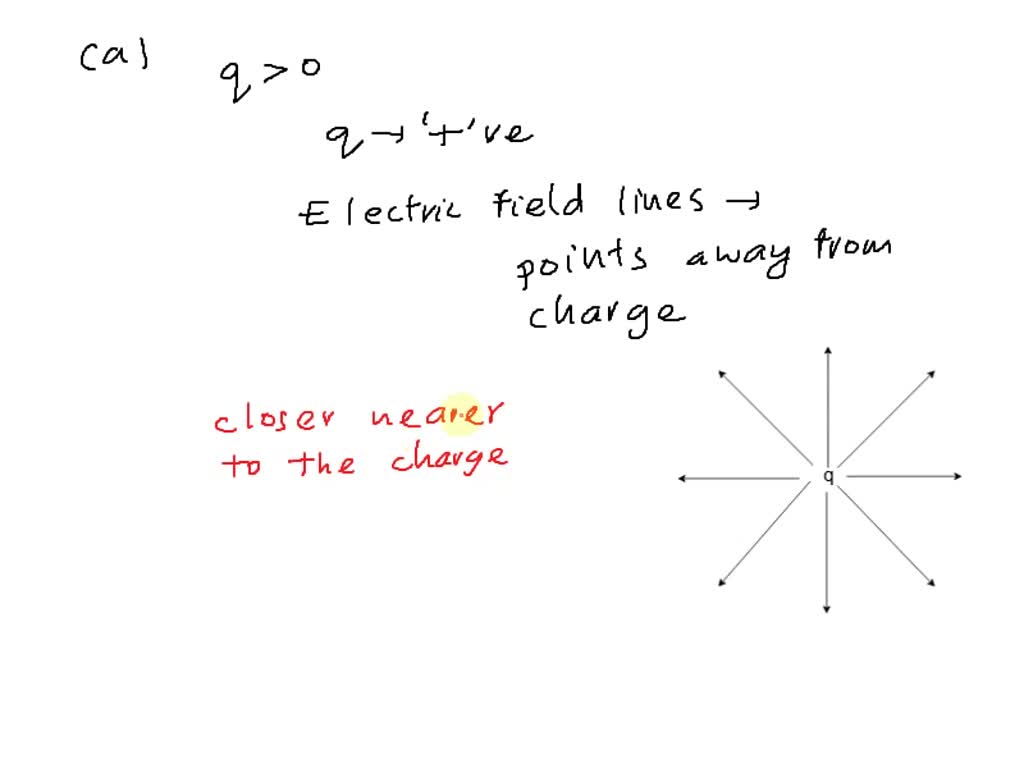 (a)
q > 0
q → '+'ve
Electric field lines →
points away from
charge
closer nearer
to the charge
q